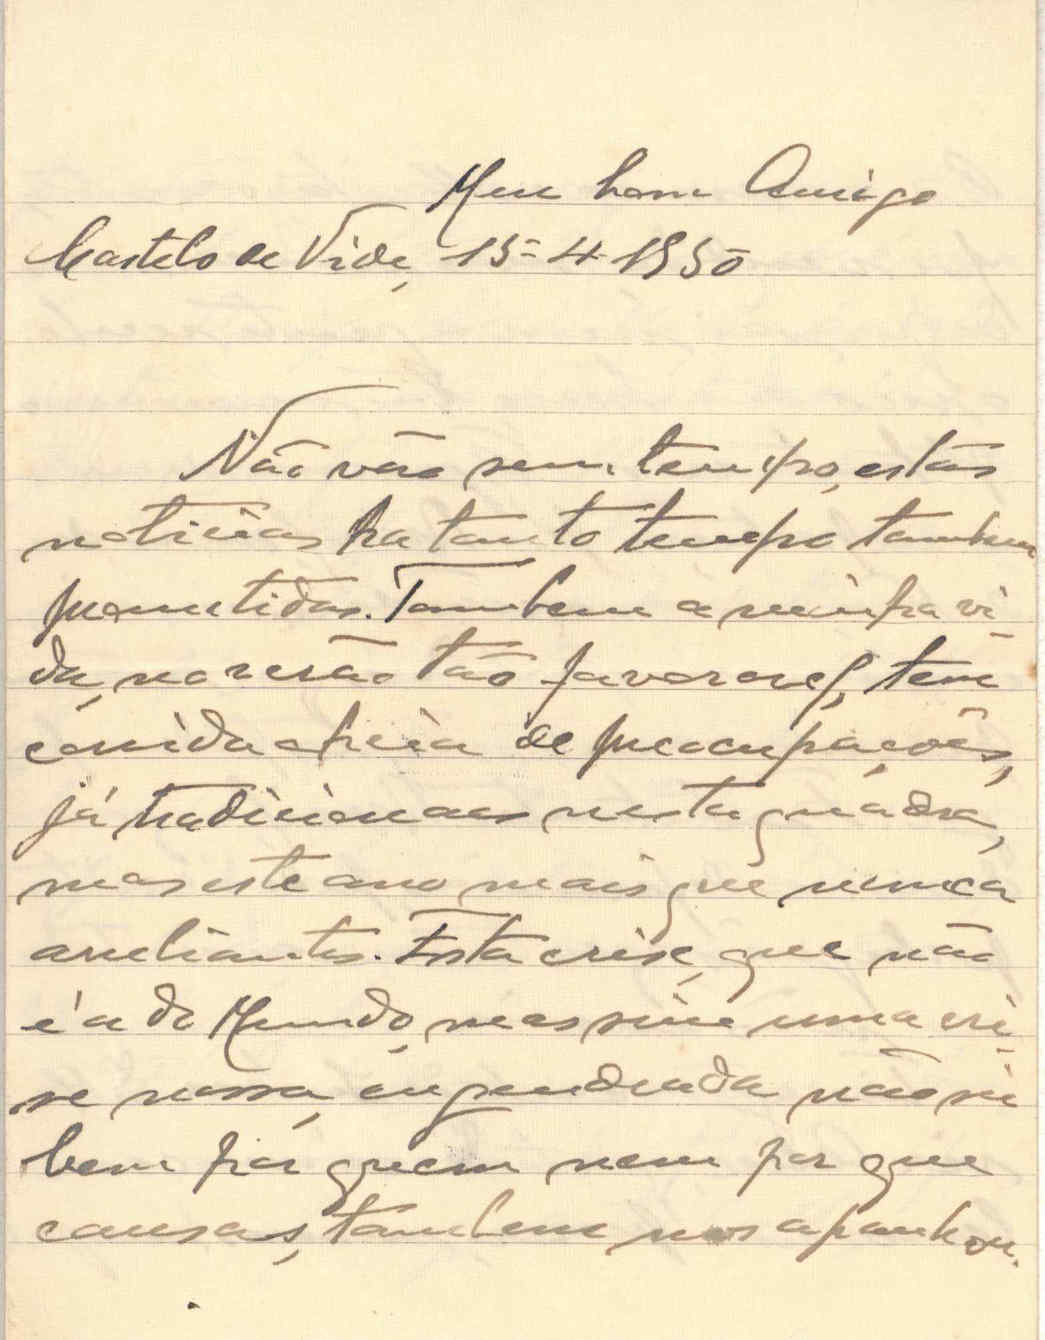 Meu bom Amigo
Castelo de Vide, 15-4-1950
Não vão sem tempo, estas
noticias ha tanto tempo tambem
prometidas. Tambem a minha vi-
da, no verão tão favoravel, tem
corrido cheia de preocupações,
já tradicionaes nesta quadra,
mas este ano mais que nunca
arreliantes. Esta crise, que não
é a do Mundo, mas sim uma cri-
se nossa, engendrada não sei
bem por quem nem por que
causas, tambem nos apanhou.